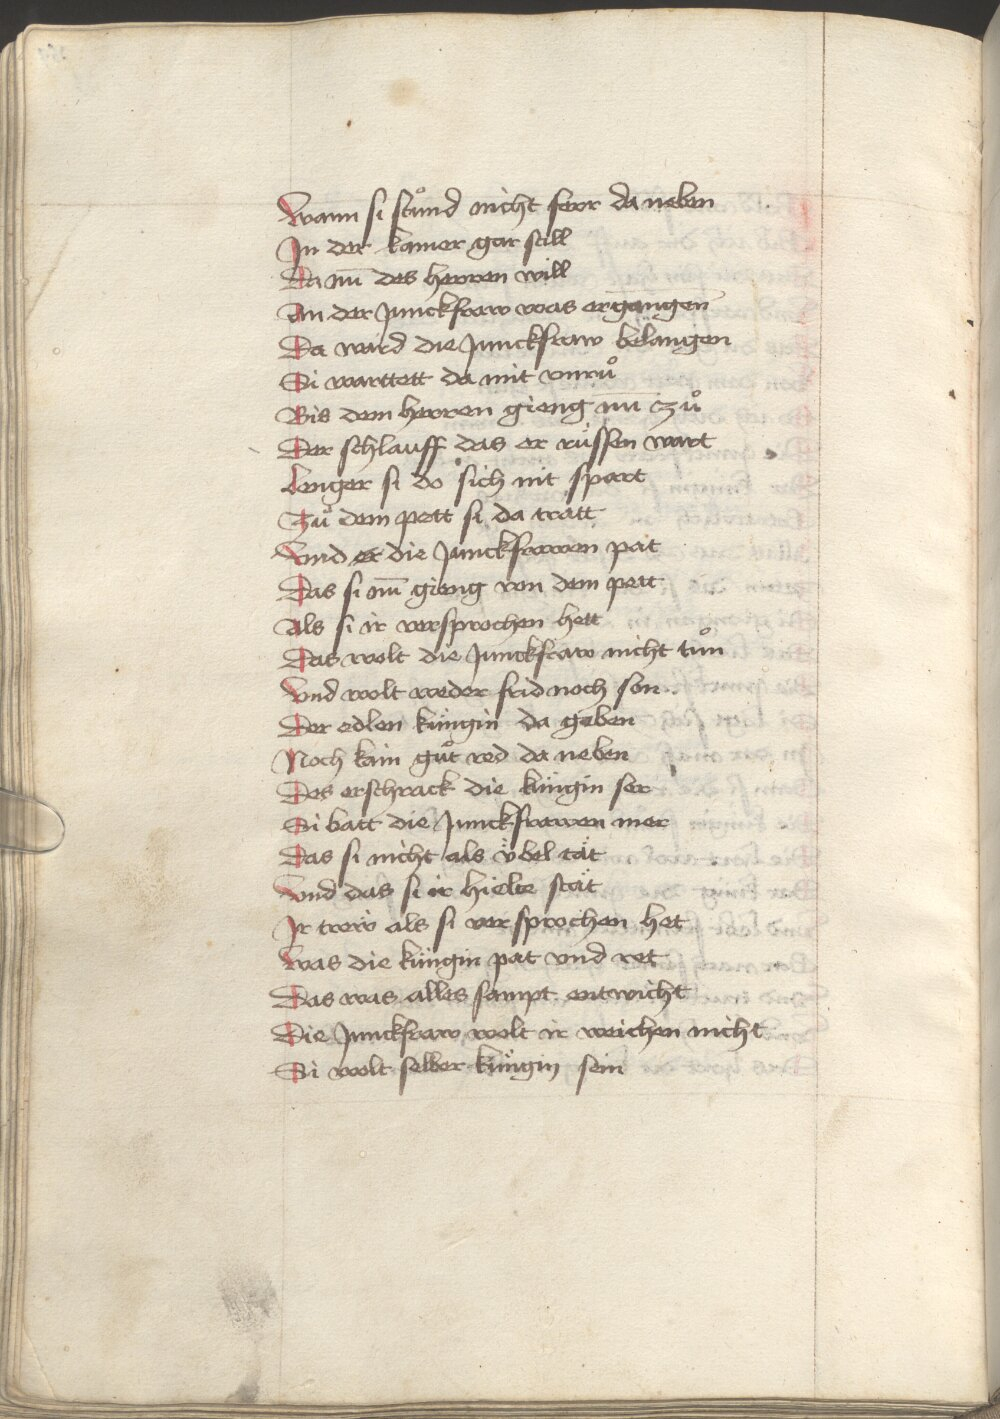 Wann si stuͦnd nicht ferr da neben
In der kamer gar still
Da nū des herren will
An der Junckfraw was ergangen
Da ward die Junckfraw belangen
Si warttett da mit vnruͦ
Bis dem herren gieng nū zuͦ
Der schlauff das er rüssen wart
Lenger si do sich nit spart
Zuͦ dem pett si da tratt
Vnd er die Junckfrawen pat
Das si nū gieng von dem pett
Als si ir versprochen hett
Das wolt die Junckfraw nicht tuͦn
Vnd wolt weder frid noch son
Der edlen küngin da geben
Noch kain guͦt red da neben
Des erschrack die küngin ser
Si batt die Junckfrawen mer
Das si nicht als v̈bel tät
Vnd das si ir hielte stät
Ir trew als si versprochen het
Was die küngin pat vnd ret
Das was alles sampt entwicht
Die Junckfraw wolt ir weichen nicht
Si wolt selber küngin sein